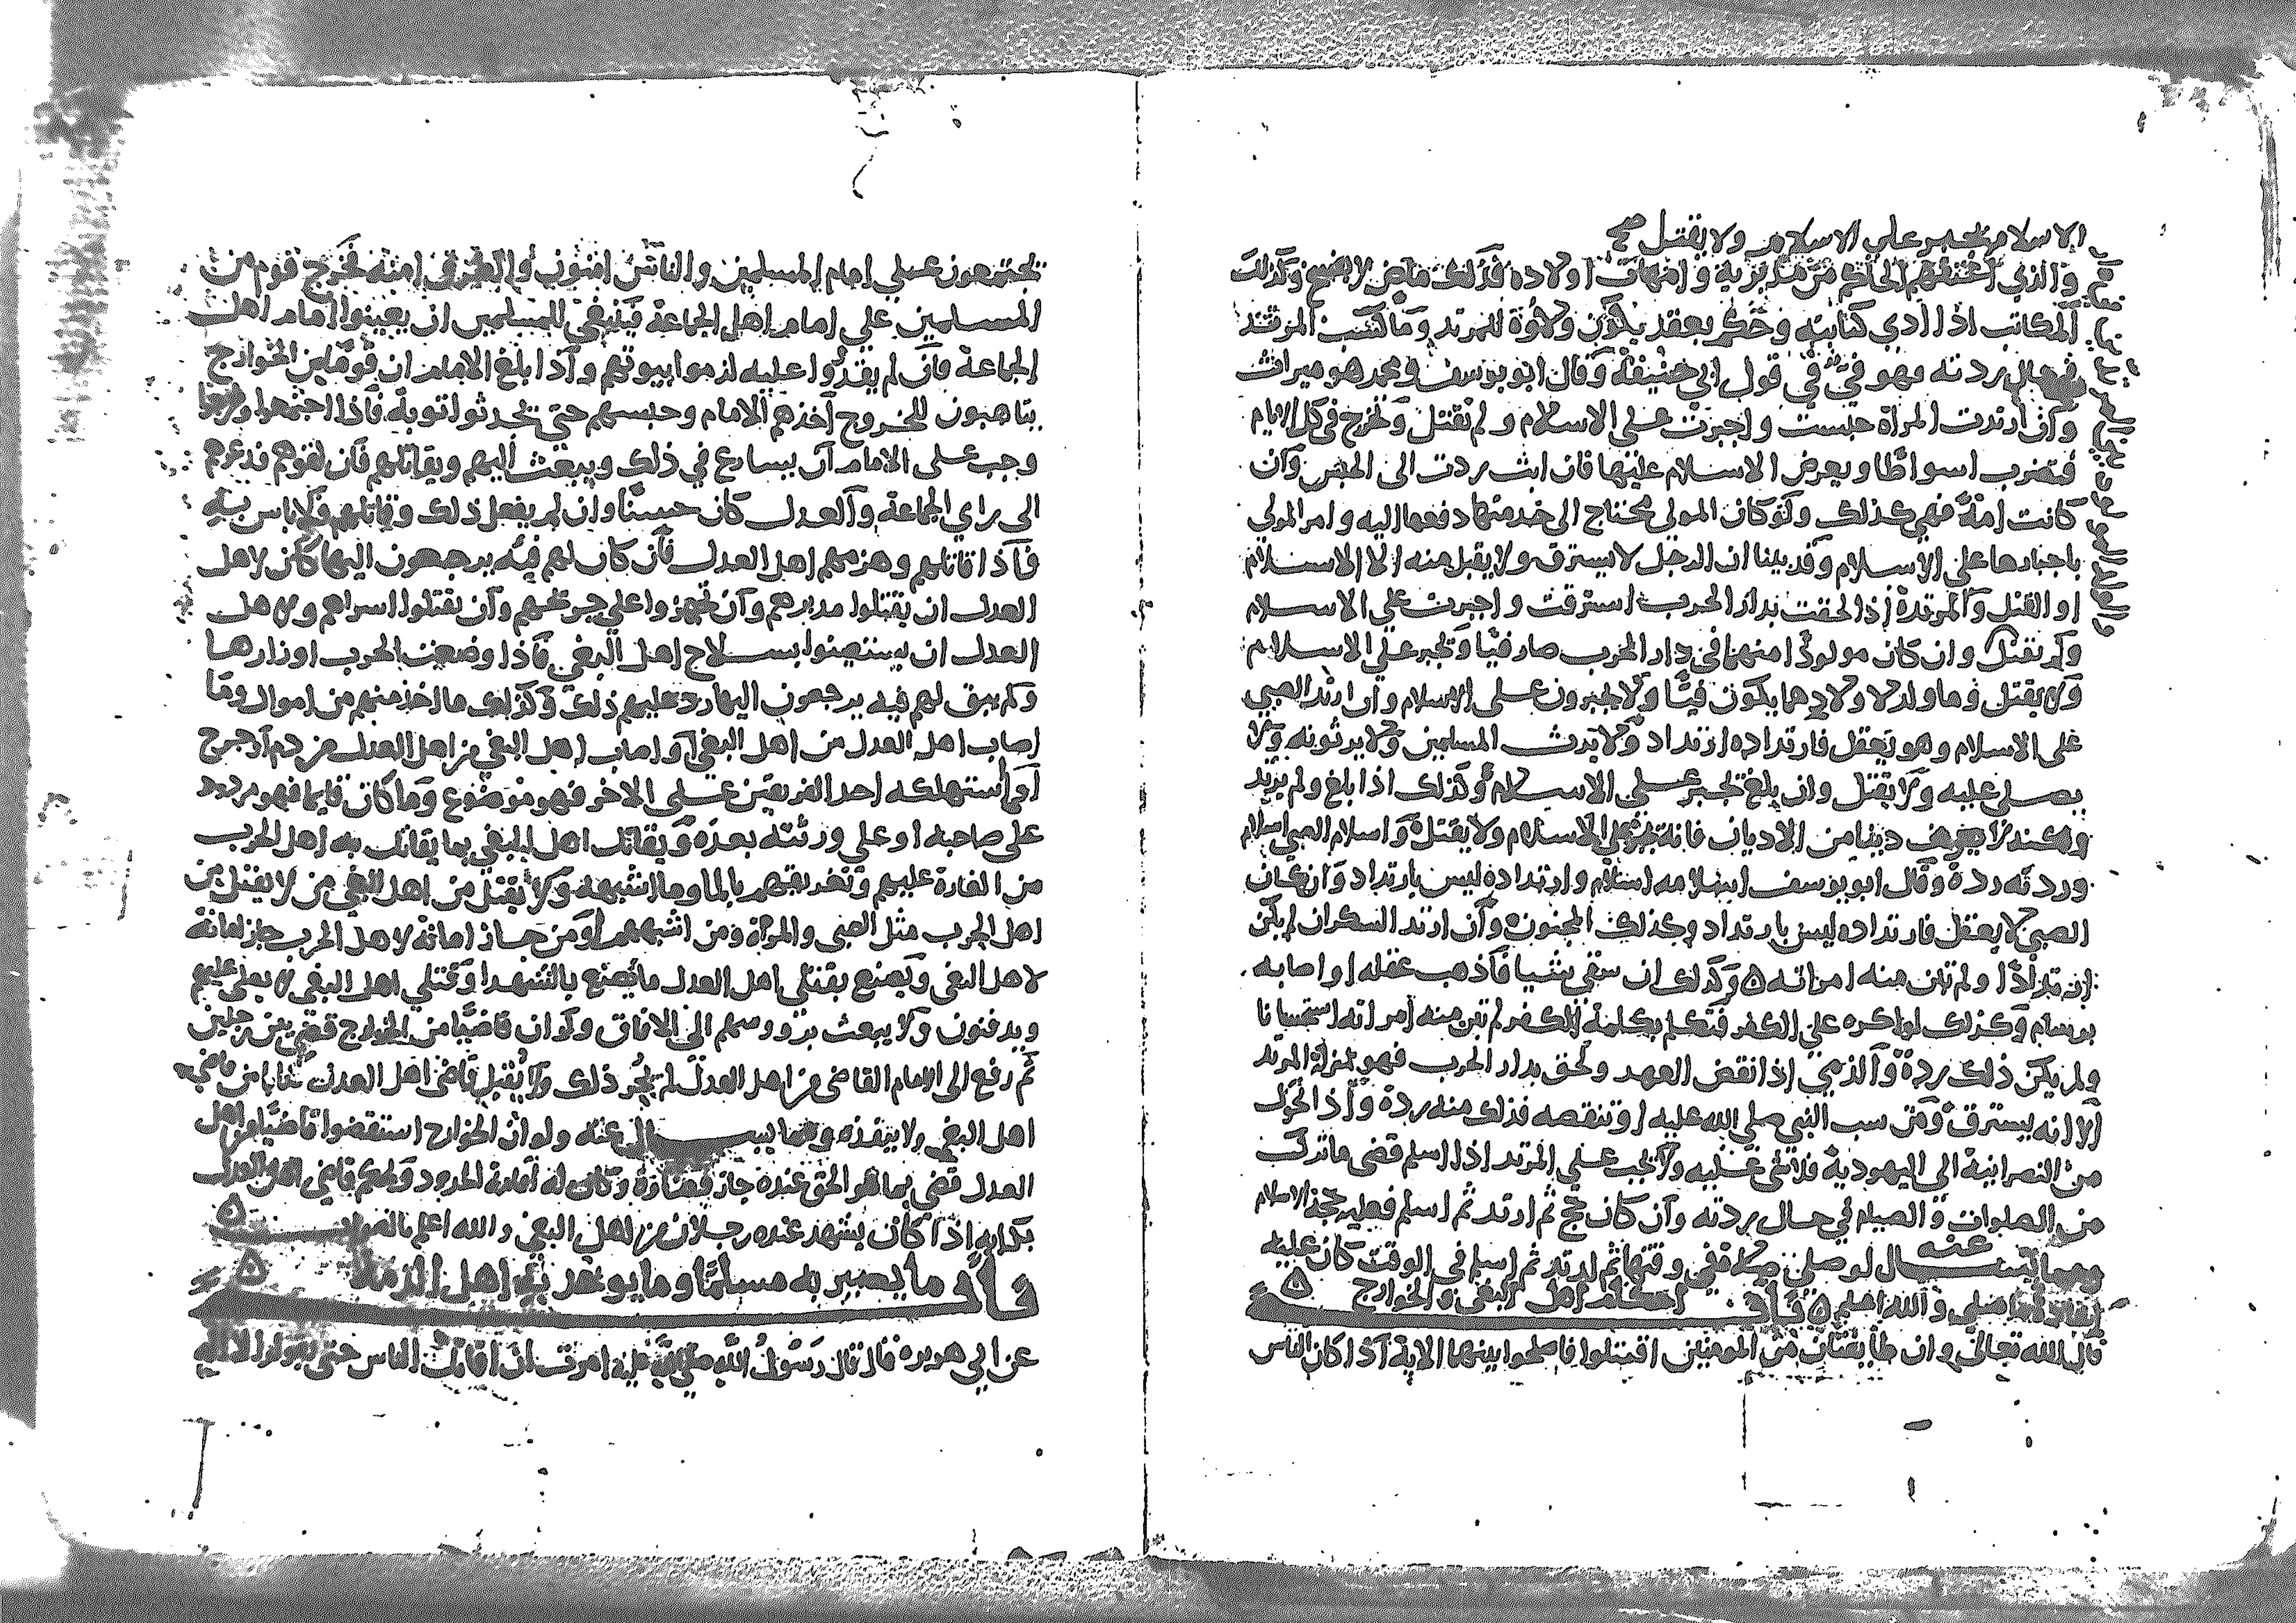 الاسلام يجبر على الاسلام ولا يقتل صح
والذي اعتقهم الحاكم من مدبريه وامهات اولاده فذلك ماض لا يفسخ وكذلك
المكاتب اذا ادى كتابته وحكم بعقد يكون ولاؤه للمرتد وما كسب المرتد
في حال ردته فهو فيء في قول ابي حنيفة وقال ابو يوسف ومحمد هو ميراث
وان ارتدت المراة حبست واجبرت على الاسلام ولم تقتل وتخرج في كل الايام
فتضرب اسواطا ويعرض الاسلام عليها فان ابت ردت الى الحبس وان
كانت امة فهي كذلك ولو كان المولى محتاج الى خدمتها دفعها اليه وامر المولى
باجبارها على الاسلام وقد بينا ان الرجل لا يسترق ولا يقبل منه الا الاسلام
او القتل والمرتدة اذا لحقت بدار الحرب استرقت واجبرت على الاسلام
ولم تقتل وان كان مولودا منهما في دار الحرب صار فيا وتجبر على الاسلام
ولا يقتل وما ولد لاولادهما يكون فيا ولا يجبرون على الاسلام وان ارتد الصبي
على الاسلام وهو يعقل فارتداده ارتداد ولا يرث المسلمين ولا يرثونه ولا
يصلى عليه ولا يقتل وان بلغ تجبر على الاسلام وكذلك اذا بلغ ولم يرتد
ولكنه لا يعرف دينا من الاديان فانه يجبر على الاسلام ولا يقتل واسلام الصبي اسلام
وردته ردة وقال ابو يوسف اسلامه اسلام وارتداده ليس بارتداد وان كان
الصبي لا يعقل فارتداده ليس بارتداد وكذلك المجنون وان ارتد السكران لم يكن
ارتدادا ولم تبن منه امراته ه وكذلك ان سقي شيا فاذهب عقله او اصابه
برسام وكذلك لو اكره على الكفر فتكلم بكلمة الكفر لم تبن منه امراته استحسانا
ولم يكن ذلك ردة والذمي اذا نقض العهد ولحق بدار الحرب فهو بمنزلة المرتد
الا انه يسترق ومن سب النبي صلى الله عليه او تنقصه فذلك منه ردة واذا تحول
من النصرانية الى اليهودية فلا شي عليه ولا يجب على المرتد اذا اسلم قضى ما ترك
من الصلوات والصيام في حال ردته وان كان حج ثم ارتد ثم اسلم فعليه حجة الاسلام
ومما يسال عنه لو صلى صلاة في وقتها ثم ارتد ثم اسلم في الوقت كان عليه
اعادة ما صلى والله اعلم ه باب احكام اهل البغي والخوارج ه
قال الله تعالى وان طايفتان من المومنين اقتتلوا فاصلحوا بينهما الاية اذا كان الناس
يجتمعون على امام المسلمين والناس امنون والطرق امنه فخرج قوم من
المسلمين على امام اهل الجماعة فينبغي للمسلمين ان يعينوا امام اهل
الجماعة فان لم يقدروا عليه لزموا بيوتهم واذا بلغ الامام ان قوما من الخوارج
يتاهبون للخروج اخذهم الامام وحبسهم حتى يحدثوا توبة فاذا اجتمعوا
وجب على الامام ان يسارع في ذلك ويبعث اليهم ويقاتلهم فان لقوهم فدعوهم
الى راي الجماعة والعدل كان حسنا وان لم يفعل ذلك وقاتلهم فلا باس به
فاذا قاتلهم وهزمهم اهل العدل فان كان لهم فيه يرجعون اليها كان لاهل
العدل ان يقتلوا مدبرهم وان يجهزوا على جريحهم وان يقتلوا اسراهم ولاهل
العدل ان يستعينوا بسلاح اهل البغي فاذا وضعت الحرب اوزارها
ولم يبق لهم فيه يرجعون اليها رد عليهم ذلك وكذلك ما اخذ منهم من اموال وما
اصاب اهل العدل من اهل البغي او اصاب اهل البغي من اهل العدل من دم او جرح
او استهلكه احد الفريقين على الاخر فهو موضوع وما كان قايما فهو مردود
على صاحبه او على ورثته بعده ويقاتل اهل البغي بما يقاتل به اهل الحرب
من الغارة عليهم وتغريقهم بالما وما اشبهه ولا يقتل من اهل البغي من لا يقتل من
اهل الحرب مثل الصبي والمراة ومن اشبههما ومن جاز امانه لاهل الحرب جاز امانه
لاهل البغي ويصنع بقتلى اهل العدل ما يصنع بالشهدا وقتلى اهل البغي لا يصلى عليهم
ويدفنون ولا يبعث برووسهم الى الافاق ولو ان قاضيا من الخوارج قضى بين رجلين
ثم رفع الى الامام القاضى من اهل العدل لم يجز ذلك ولا يقبل قاضي اهل العدل كتابا من قاضي
اهل البغي ولا ينفذه ومما يسال عنه ولو ان الخوارج استقضوا قاضيا من اهل
العدل قضى بما هو الحق عنده جاز قضاؤه وكان له اقامة الحدود والحكم قاضي اهل العدل
بكتابه اذا كان يشهد عنده رجلان من اهل البغي والله اعلم بالصواب ه
باب ما يصير به مسلما وما يوخذ به اهل الذمة ه
عن ابي هريره قال قال رسول الله صلى الله عليه امرت ان اقاتل الناس حتى يقولوا لا اله